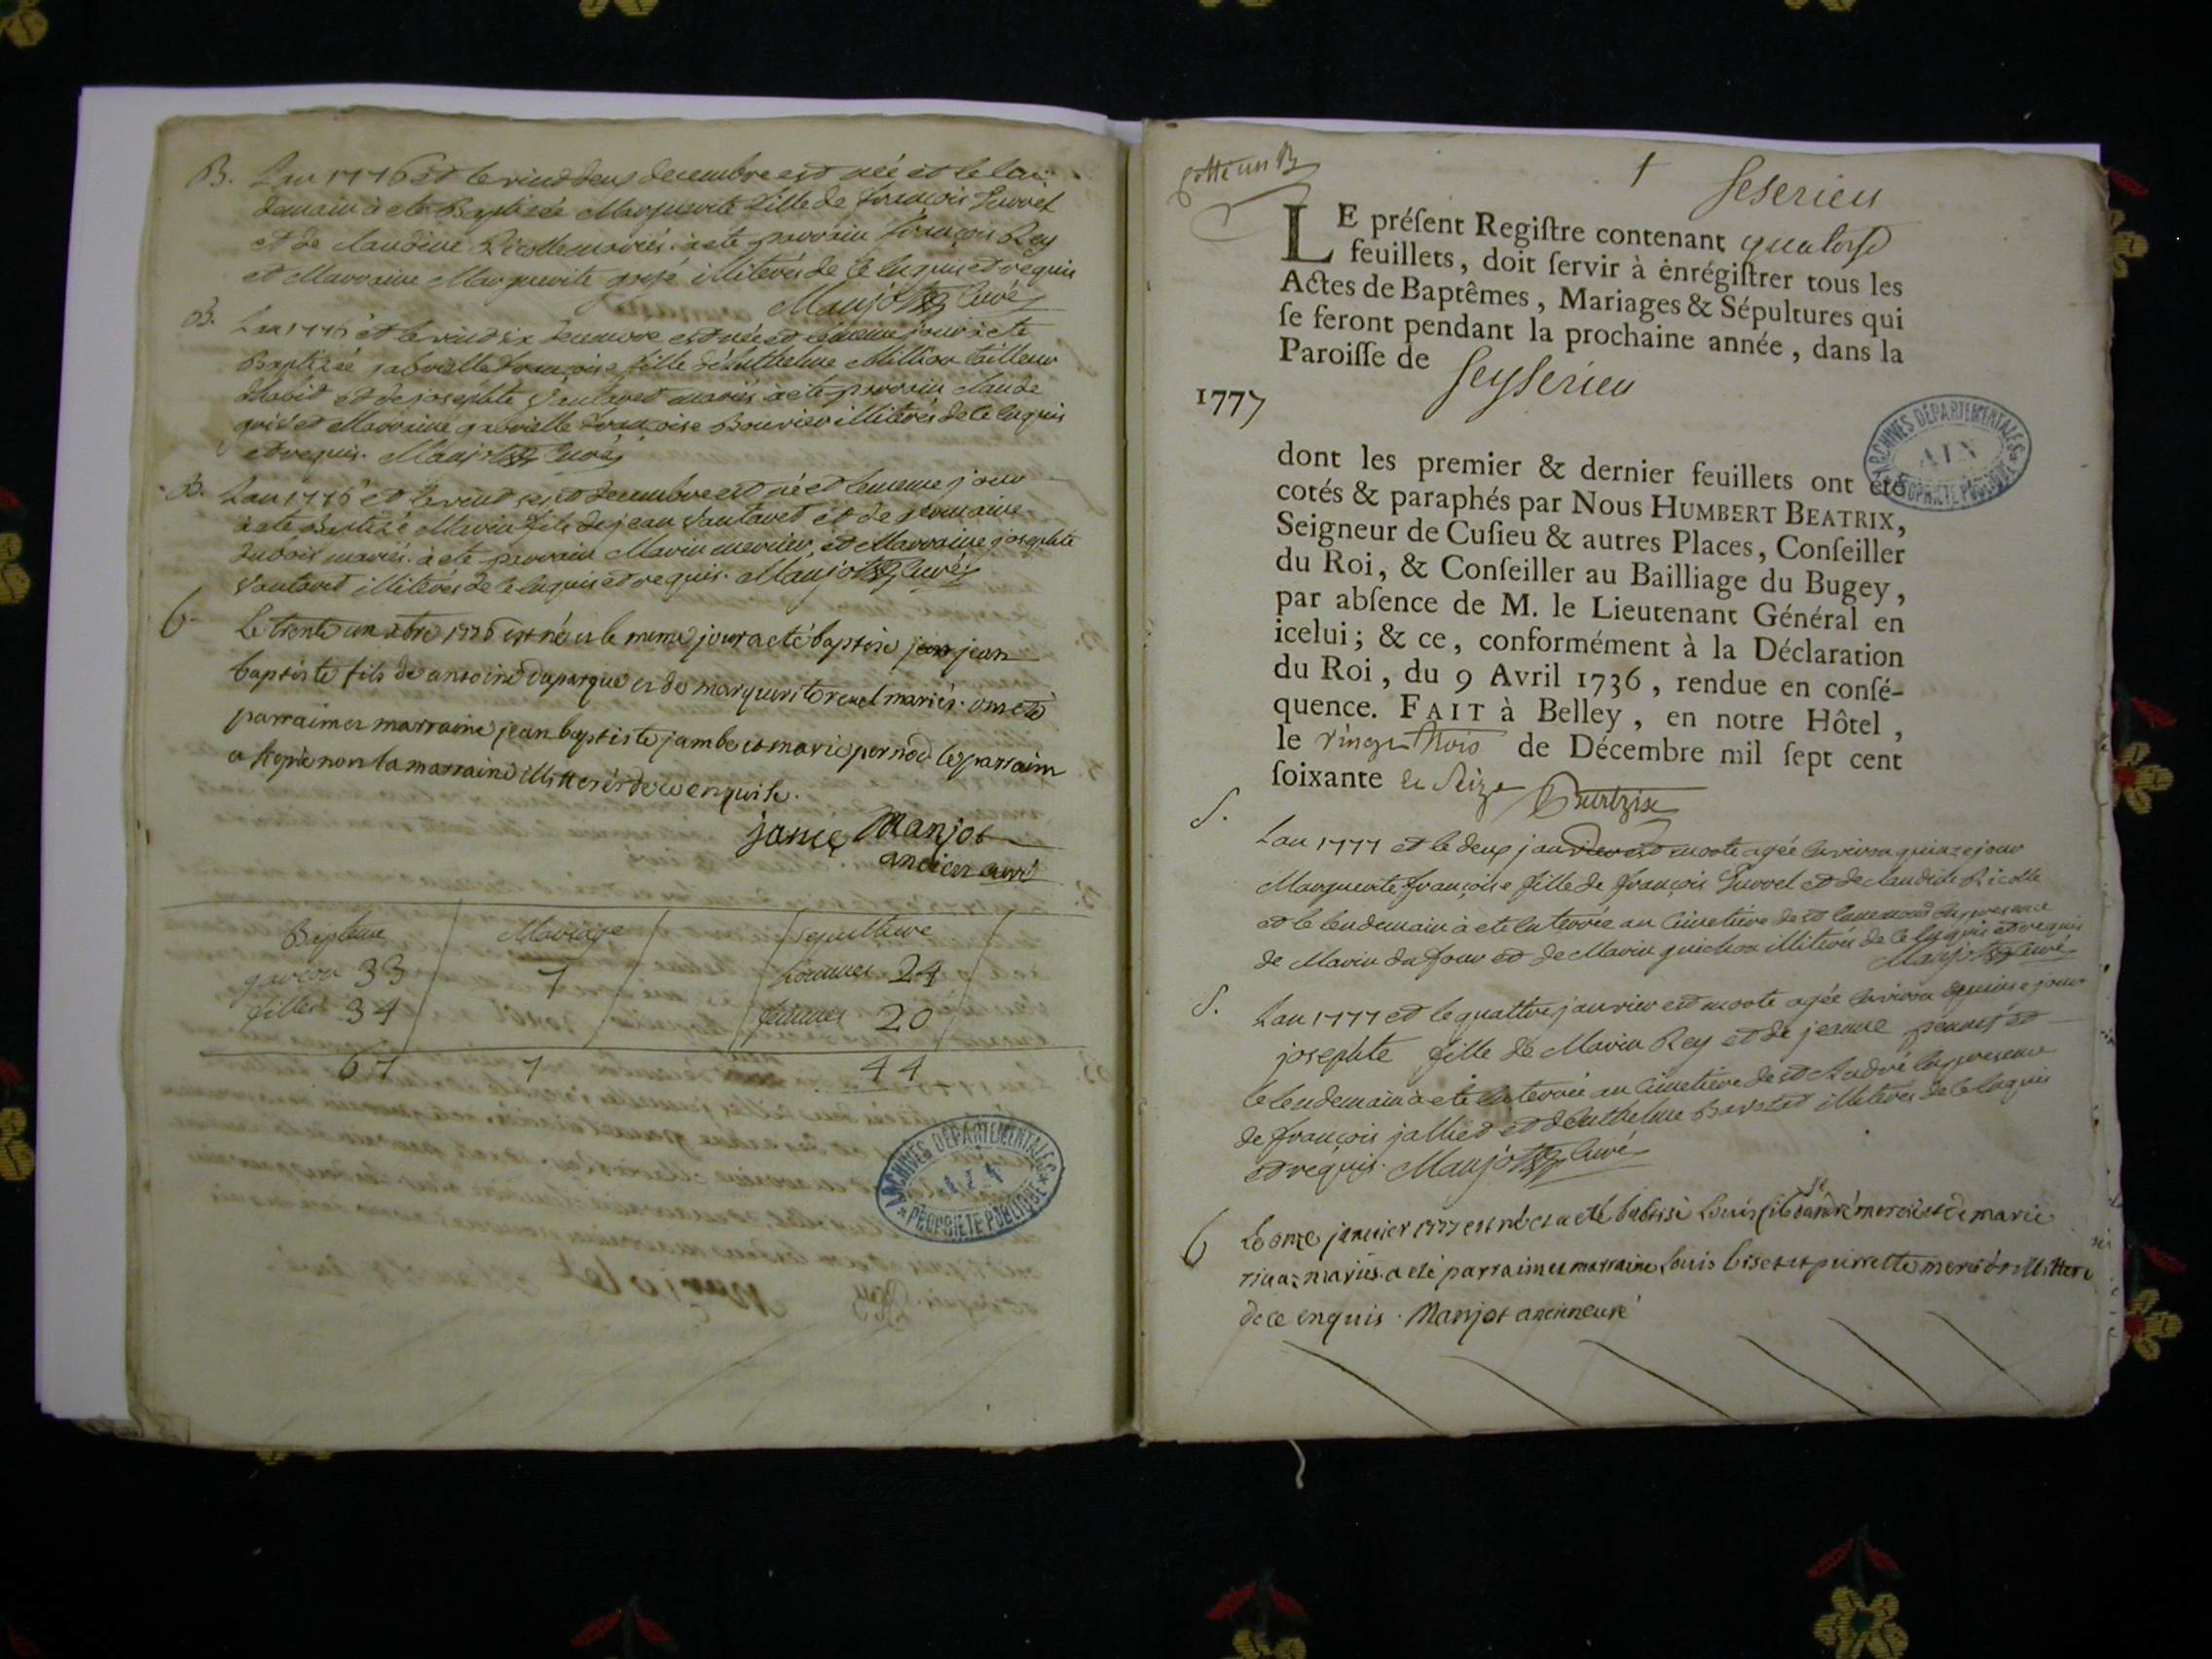 B. Lan 1776 et le vint deux decembre est née et le len
demain à ete Baptizée Marguerite fille de françois Survet
et de claudine Ricolle mariés. à ete parrain françois Rey
et Marraine Marguerite illiterés de ce enquis et requis
Manjot curé
B. Lan 1776 et le vint six decembre est née et le meme jour à ete
Baptizée gabrielle françoise fille d'Anthelme Million tailleur
dhabit et de josephte Vantaret mariés à ete parrain claude
et Marraine gabrielle françoise Bouvier illiterés de ce enquis
et requis. Manjot curé
B. Lan 1776 et le vint sept decembre est né et le meme jour
à ete Baptizé Marin fils de jean Vantaret et de germaine
Dubois mariés. à ete parrain Marin mercier et Marraine josephte
Vantaret illiterés de ce enquis et requis. Manjot curé
b. Le trente un xbre 1776 est né et le meme jour a eté baptisé jean jean
baptiste fils de antoine duparque et de marguerite revel mariés. ont eté
parrain et marraine jean baptiste jambe et marie pernod le parrain
a signé non la marraine illitterés de ce enquise.
jance Manjot
ancien curé
Bapteme Mariage Sepulture
garcon 33 7 hommes 24
filles 34 femmes 20
67 7 44
ARCHIVES DÉPARTEMENTALES
AIN
* PROPRIÉTÉ PUBLIQUE *
Cotté un B
†
Seserieu
LE préſent Regiſtre contenant quatorse
feuillets, doit ſervir à enrégiſtrer tous les
Actes de Baptêmes, Mariages & Sépultures qui
ſe feront pendant la prochaine année, dans la
Paroiſſe de Seyserieu
1777
ARCHIVES DÉPARTEMENTALES
AIN
PROPRIÉTÉ PUBLIQUE
dont les premier & dernier feuillets ont été
cotés & paraphés par Nous HUMBERT BEATRIX,
Seigneur de Cuſieu & autres Places, Conſeiller
du Roi, & Conſeiller au Bailliage du Bugey,
par abſence de M. le Lieutenant Général en
icelui; & ce, conformément à la Déclaration
du Roi, du 9 Avril 1736, rendue en conſé-
quence. FAIT à Belley, en notre Hôtel,
le vingt trois de Décembre mil ſept cent
ſoixante et Seize Beatrix
S. Lan 1777 et le deux janvier est morte agée environ quinze jour
Marguerite françoise fille de françois Survet et de claudine Ricolle
et le lendemain à ete enterrée au cimetiere de st en presence
de Marin dufour et de Marin guichon illiterés de ce enquis et requis
Manjot curé
S. Lan 1777 et le quattre janvier est morte agée environ quinze jour
josephte fille de Marin Rey et de jeanne et
le lendemain à ete enterrée au cimetiere de st André en presence
de françois jallied et d'Anthelme illiterés de ce enquis
et requis. Manjot curé
b Le onze janvier 1777 est né et a eté babtisé Louis fils dandré mercier et de marie
mariés. a eté parrain et marraine Louis biset et pierrette illitteré
de ce enquis. Manjot ancien curé